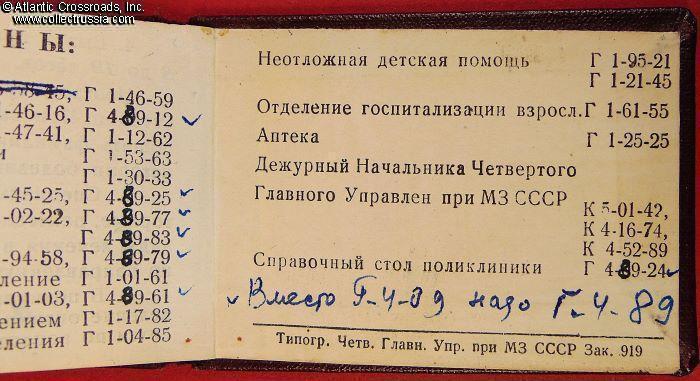 © Atlantic Crossroads, Inc.
www.collectrussia.com
Н Ы:
58-45, Г 1-46-59
-46-16, Г 4-89-12
-47-41, Г 1-12-62
и Г 1-53-63
Г 1-30-33
-45-25, Г 4-89-25
-02-22, Г 4-89-77
Г 4-89-83
-94-58, Г 4-89-79
ление Г 1-01-61
-01-03, Г 4-89-61
ением Г 1-17-82
деления Г 1-04-85
Неотложная детская помощь Г 1-95-21
Г 1-21-45
Отделение госпитализации взросл. Г 1-61-55
Аптека Г 1-25-25
Дежурный Начальника Четвертого
Главного Управлен при МЗ СССР
К 5-01-42,
К 4-16-74,
К 4-52-89
Справочный стол поликлиники Г 4-89-24
Вместо Г-4-39 надо Г-4-89
Типогр. Четв. Главн. Упр. при МЗ СССР Зак. 919